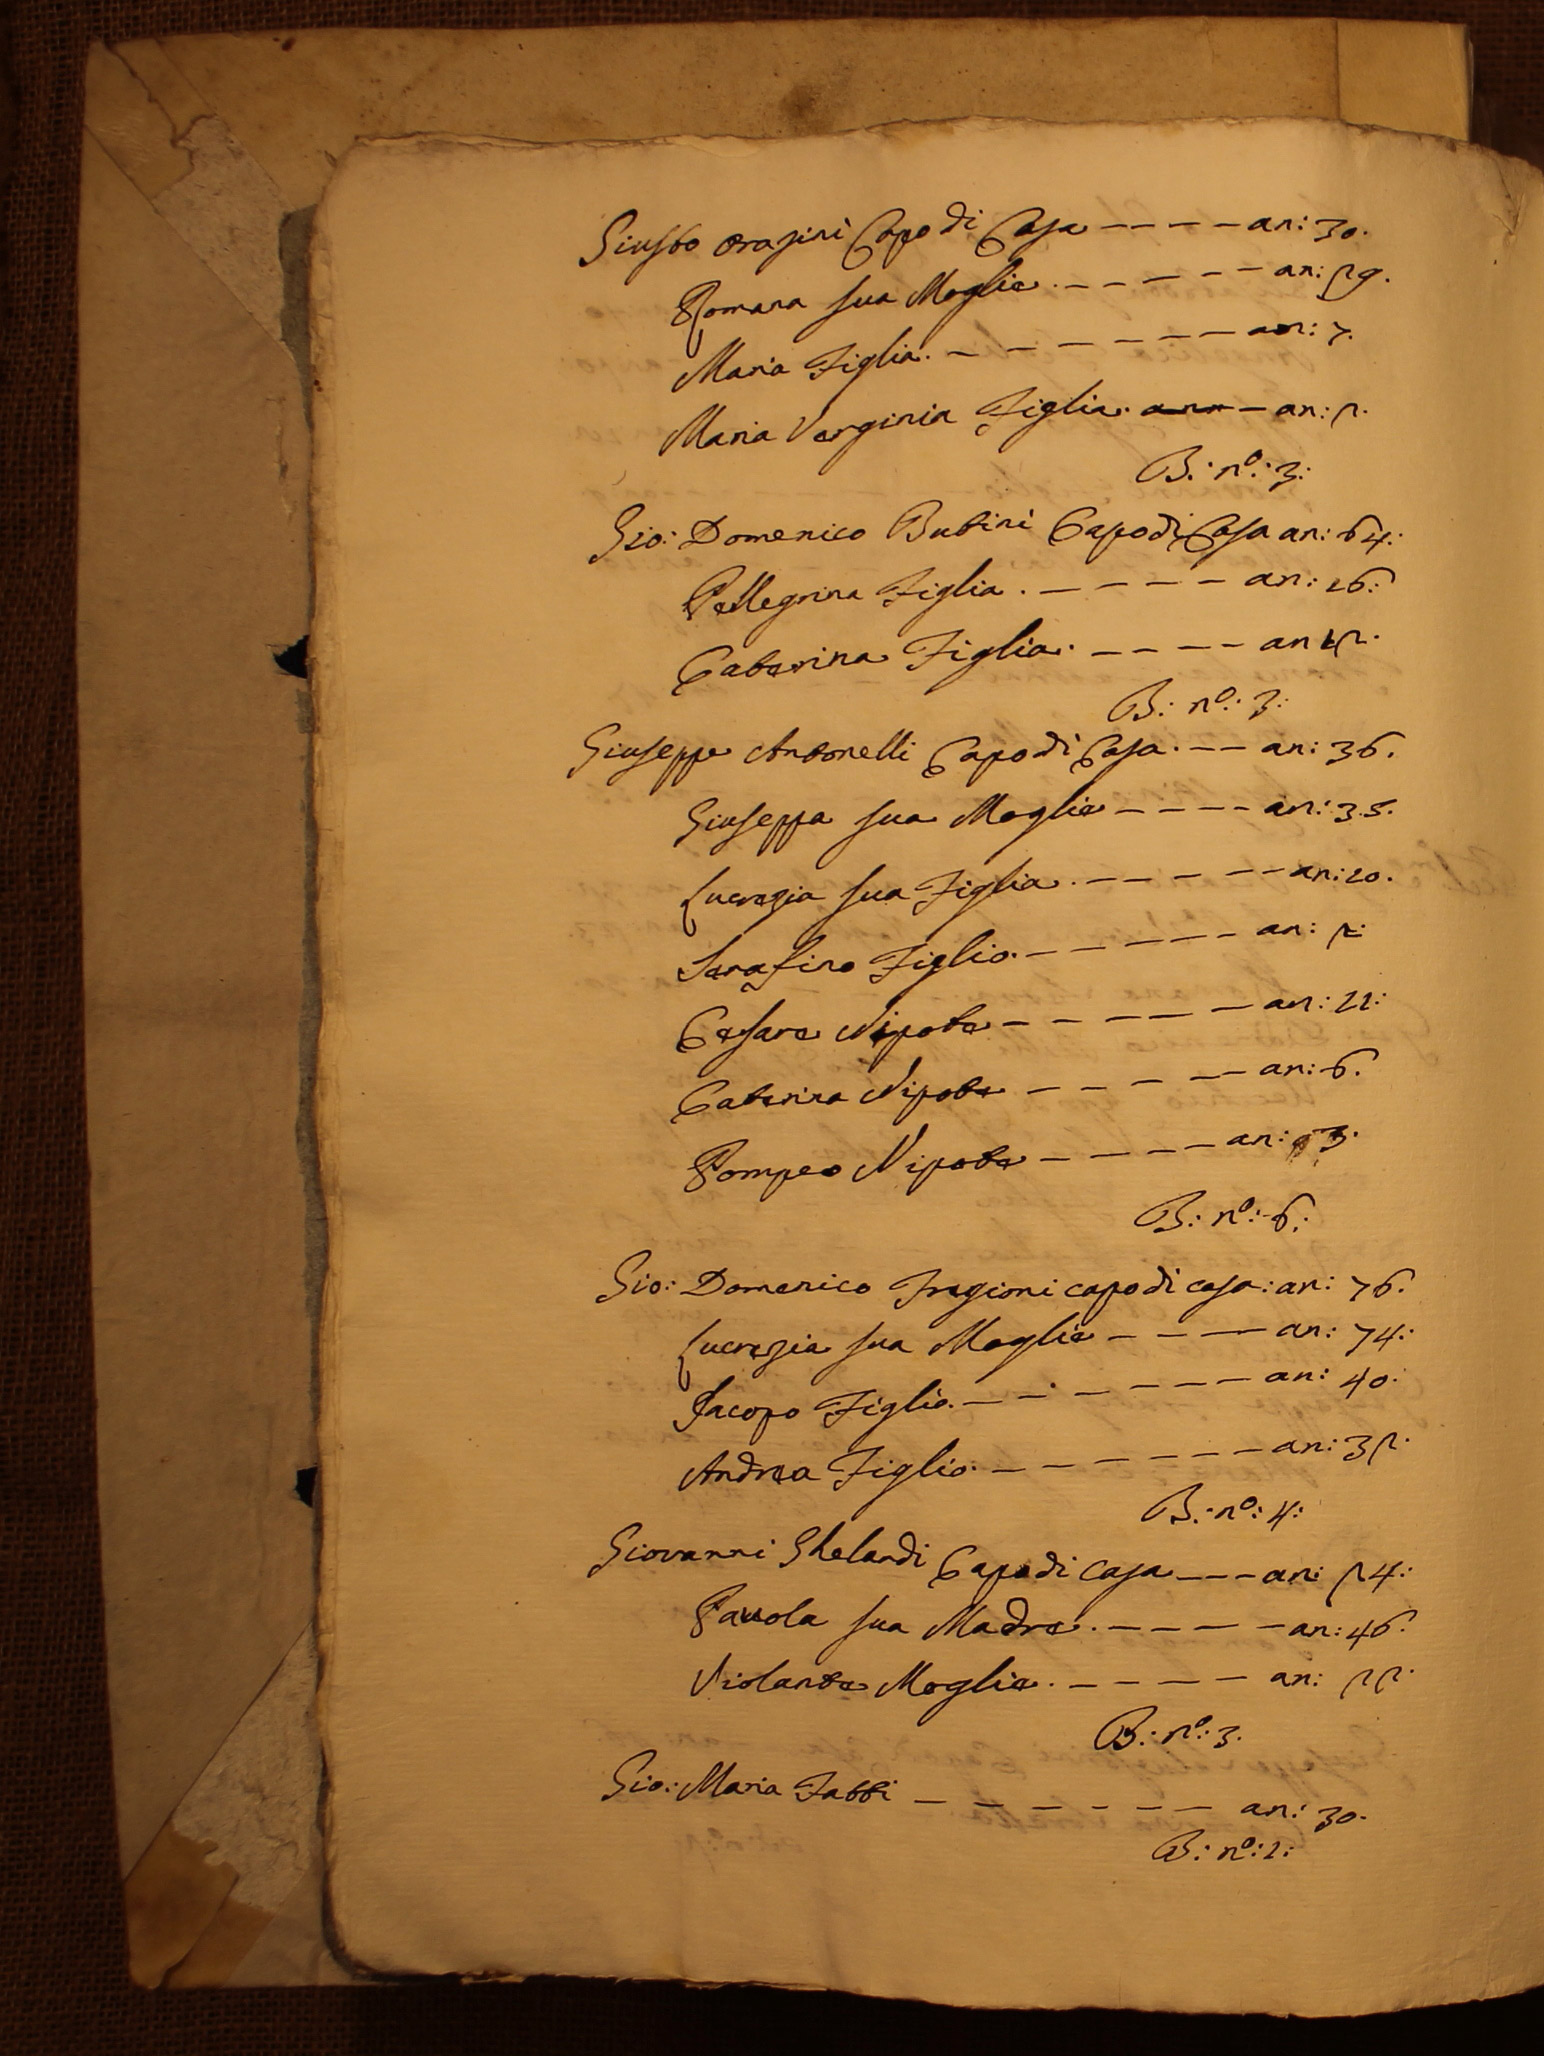 Giusto Orazini Capo di Casa ---- an: 30.
Romana sua Moglie. ----- an: 29.
Maria Figlia. ------ an: 7.
Maria Verginia Figlia. - an: 2.
B: nº: 3:
Gio: Domenico Butini Capo di Casa an: 64:
Pellegrina Figlia. ---- an: 26:
Catarina Figlia. ---- an 12.
B: nº: 3:
Giuseppe Antonelli Capo di Casa. -- an: 36.
Giuseppa sua Moglie ---- an: 35.
Lucrezia sua Figlia. ----- an: 10.
Serafino Figlio. ------ an: 2:
Cesare Nipote ----- an: 11:
Caterina Nipote ----- an: 6.
Pompeo Nipote ----- an: 3.
B: nº: 6:
Gio: Domenico Fregioni capo di casa: an: 76.
Lucrezia sua Moglie ---- an: 74:
Jacopo Figlio. ------ an: 40:
Andrea Figlio. ------ an: 32.
B: nº: 4:
Giovanni Ghelardi Capo di Casa --- an: 24:
Pauola sua Madre. ---- an: 46:
Violante Moglie. ---- an: 22.
B: nº: 3.
Gio: Maria Fabbi ------ an: 30.
B: nº: 1: